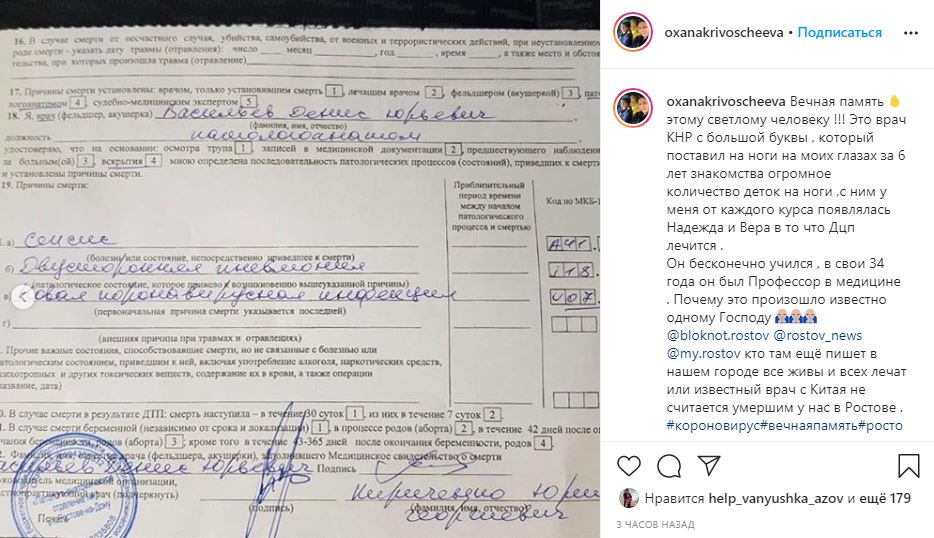 16. В случае смерти от несчастного случая, убийства, самоубийства, от военных и террористических действий, при неустановленном
роде смерти - указать дату травмы (отравления): число ____ месяц ____, год ____, время ____, а также место и обстоя
тельства, при которых произошла травма (отравление)
17. Причины смерти установлены: врачом, только установившим смерть 1, лечащим врачом 2, фельдшером (акушеркой) 3, пат
логоанатомом 4, судебно-медицинским экспертом 5.
18. Я, врач (фельдшер, акушерка) Васильев Денис Юрьевич
(фамилия, имя, отчество)
должность патологоанатом
удостоверяю, что на основании: осмотра трупа 1, записей в медицинской документации 2, предшествующего наблюдени
за больным(ой) 3, вскрытия 4 мною определена последовательность патологических процессов (состояний), приведших к смерти
и установлены причины смерти.
19. Причины смерти:
Приблизительный период времени между началом патологического процесса и смертью
Код по МКБ-1
а) Сепсис
A41.
(болезнь или состояние, непосредственно приведшее к смерти)
б) Двусторонняя пневмония
i18.
(патологическое состояние, которое привело к возникновению вышеуказанной причины)
в) новая коронавирусная инфекция
U07.
(первоначальная причина смерти указывается последней)
г)
(внешняя причина при травмах и отравлениях)
Прочие важные состояния, способствовавшие смерти, но не связанные с болезнью или
патологическим состоянием, приведшим к ней, включая употребление алкоголя, наркотических средств,
психотропных и других токсических веществ, содержание их в крови, а также операции
название, дата)
0. В случае смерти в результате ДТП: смерть наступила - в течение 30 суток 1, из них в течение 7 суток 2.
В случае смерти беременной (независимо от срока и локализации) 1, в процессе родов (аборта) 2, в течение 42 дней после ок
нчания беременности, родов (аборта) 3; кроме того в течение 43-365 дней после окончания беременности, родов 4.
2. Фамилия, имя, отчество врача (фельдшера, акушерки), заполнившего Медицинское свидетельство о смерти
Васильев Денис Юрьевич Подпись
руководитель медицинской организации,
частнопрактикующий врач (подчеркнуть)
Кириченко Юрий
Георгиевич
(подпись)
(фамилия, имя, отчество)
Печать
oxanakrivoscheeva • Подписаться
oxanakrivoscheeva Вечная память
этому светлому человеку !!! Это врач
КНР с большой буквы , который
поставил на ноги на моих глазах за 6
лет знакомства огромное
количество деток на ноги ,с ним у
меня от каждого курса появлялась
Надежда и Вера в то что Дцп
лечится .
Он бесконечно учился , в свои 34
года он был Профессор в медицине
. Почему это произошло известно
одному Господу
@bloknot.rostov @rostov_news
@my.rostov кто там ещё пишет в
нашем городе все живы и всех лечат
или известный врач с Китая не
считается умершим у нас в Ростове .
#короновирус#вечнаяпамять#росто
Нравится help_vanyushka_azov и ещё 179
3 ЧАСОВ НАЗАД